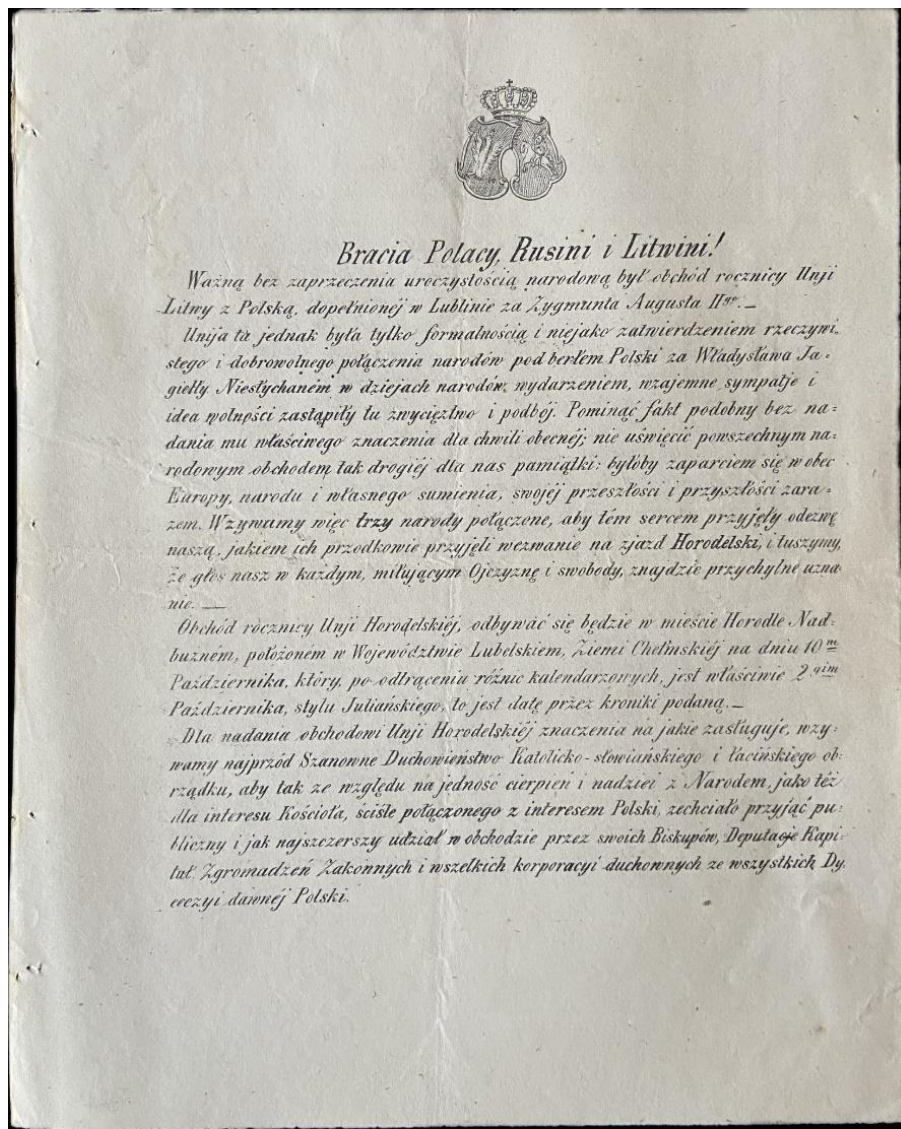 Bracia Polacy, Rusini i Litwini!
Ważną bez zaprzeczenia uroczystością narodową był obchód rocznicy Unji
Litwy z Polską, dopełnionéj w Lublinie za Zygmunta Augusta IIgo. —
Unija ta jednak była tylko formalnością i niejako zatwierdzeniem rzeczywi-
stego i dobrowolnego połączenia narodów pod berłem Polski za Władysława Ja-
giełły. Niesłychaném w dziejach narodów, wydarzeniem, wzajemne sympatje i
idea wolności zastąpiły tu zwycięztwo i podbój. Pominąć fakt podobny bez na=
dania mu właściwego znaczenia dla chwili obecnéj; nie uświęcić powszechnym na=
rodowym obchodem tak drogiéj dla nas pamiątki: byłoby zaparciem się w obec
Europy, narodu i własnego sumienia, swojéj przeszłości i przyszłości zara=
zem. Wzywamy więc trzy narody połączone, aby tém sercem przyjęły odezwę
naszą, jakiem ich przodkowie przyjęli wezwanie na zjazd Horodelski, i tuszymy,
że głos nasz w każdym, miłującym Ojczyznę i swobody, znajdzie przychylne uzna-
nie. —
Obchód rocznicy Unji Horodelskiéj, odbywać się będzie w mieście Horodle Nad-
bużném, położoném w Województwie Lubelskiem, Ziemi Chełmskiéj na dniu 10m
Października, który, po odtrąceniu różnic kalendarzowych, jest właściwie 2gim
Października, stylu Juliańskiego, to jest datę przez kroniki podaną. —
Dla nadania obchodowi Unji Horodelskiéj znaczenia na jakie zasługuje, wzy-
wamy najprzód Szanowne Duchowieństwo Katolicko-słowiańskiego i łacińskiego ob-
rządku, aby tak ze względu na jedność cierpień i nadziei z Narodem, jako też
dla interesu Kościoła, ściśle połączonego z interesem Polski, zechciało przyjąć pu-
bliczny i jak najszczerszy udział w obchodzie przez swoich Biskupów, Deputacje Kapi-
tuł, Zgromadzeń Zakonnych i wszelkich korporacyi duchownych ze wszystkich Dy-
ecezyi dawnéj Polski.